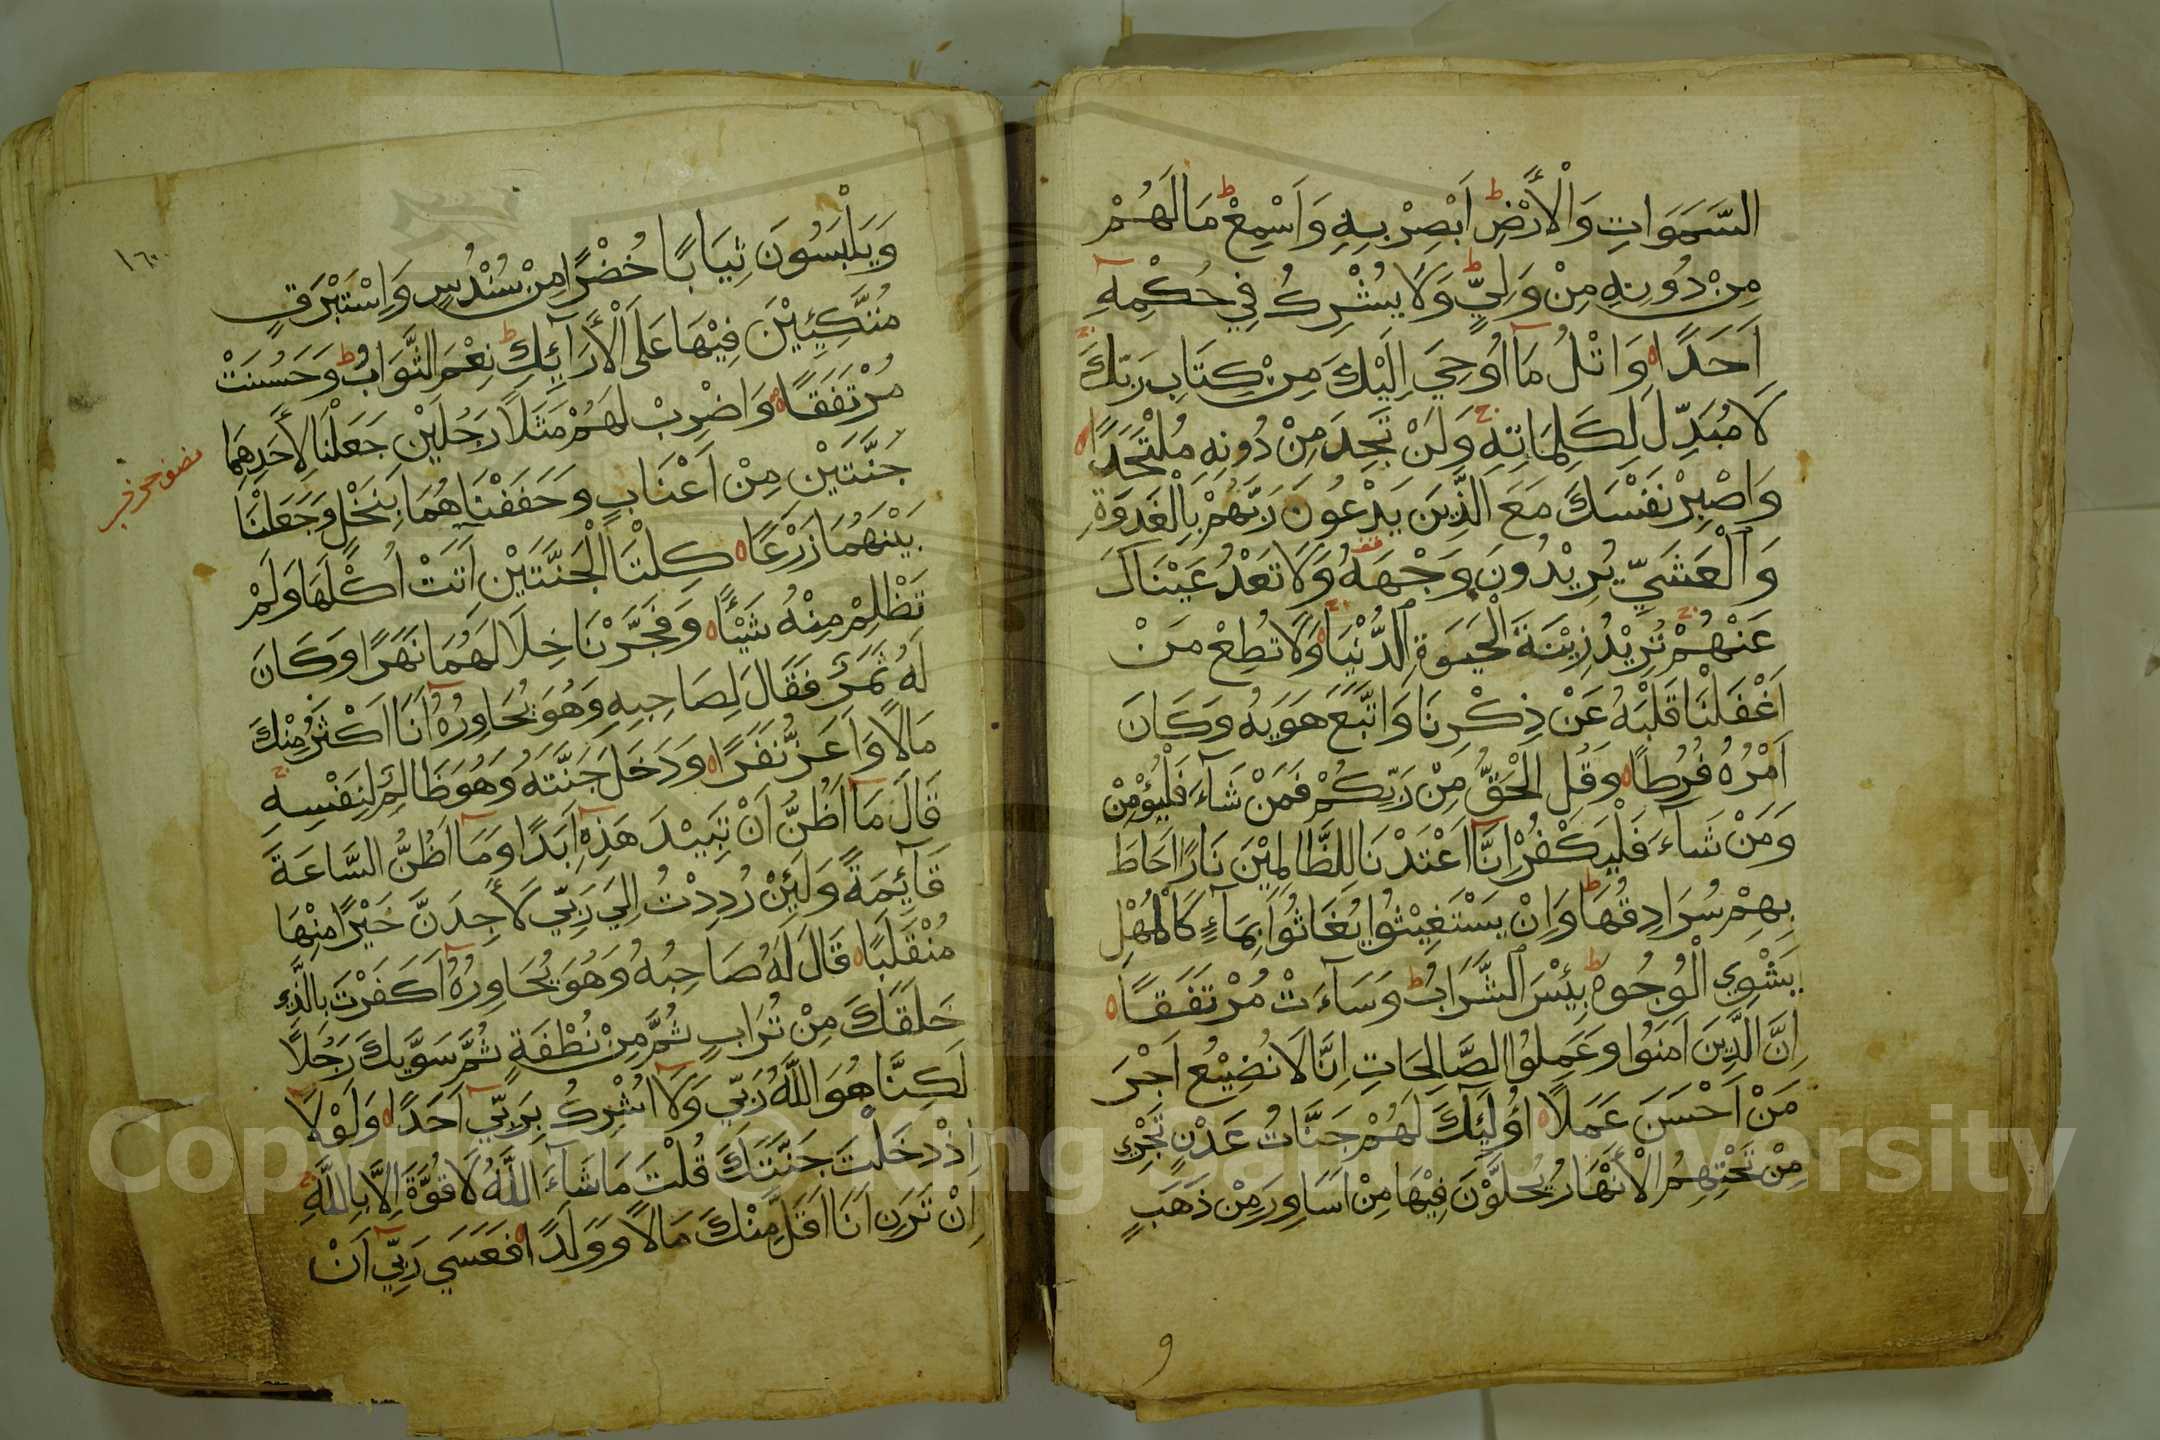 السَّمَوَاتِ وَالْأَرْضِ ط اَبْصِرْ بِهِ وَاَسْمِعْ ط مَا لَهُمْ
مِنْ دُونِهِ مِنْ وَلِيٍّ ط وَلَا يُشْرِكُ فِي حُكْمِهِ
اَحَدًا وَاتْلُ مَا اُوحِيَ اِلَيْكَ مِنْ كِتَابِ رَبِّكَ ج
لَا مُبَدِّلَ لِكَلِمَاتِهِ ج وَلَنْ تَجِدَ مِنْ دُونِهِ مُلْتَحَدًا
وَاصْبِرْ نَفْسَكَ مَعَ الَّذِينَ يَدْعُونَ رَبَّهُمْ بِالْغَدَوةِ
وَالْعَشِيِّ يُرِيْدُونَ وَجْهَهُ وَلَا تَعْدُ عَيْنَاكَ
عَنْهُمْ ج تُرِيْدُ زِيْنَةَ الْحَيَوةِ الدُّنْيَا ج وَلَا تُطِعْ مَنْ
اَغْفَلْنَا قَلْبَهُ عَنْ ذِكْرِنَا وَاتَّبَعَ هَوَيهُ وَكَانَ
اَمْرُهُ فُرُطًا وَقُلِ الْحَقُّ مِنْ رَبِّكُمْ فَمَنْ شَآءَ فَلْيُؤْمِنْ
وَمَنْ شَآءَ فَلْيَكْفُرْ اِنَّا اَعْتَدْنَا لِلظَّالِمِيْنَ نَارًا اَحَاطَ
بِهِمْ سُرَادِقُهَا ط وَاِنْ يَسْتَغِيْثُوا يُغَاثُوا بِمَآءٍ كَالْمُهْلِ
يَشْوِي الْوُجُوهَ ط بِئْسَ الشَّرَابُ ط وَسَآءَتْ مُرْتَفَقًا
اِنَّ الَّذِينَ اَمَنُوا وَعَمِلُوا الصَّالِحَاتِ اِنَّا لَا نُضِيْعُ اَجْرَ
مَنْ اَحْسَنَ عَمَلًا اُولَئِكَ لَهُمْ جَنَّاتُ عَدْنٍ تَجْرِي
مِنْ تَحْتِهِمُ الْأَنْهَارُ يُحَلَّوْنَ فِيْهَا مِنْ اَسَاوِرَ مِنْ ذَهَبٍ
و
١٦٠
وَيَلْبَسُونَ ثِيَابًا خُضْرًا مِنْ سُنْدُسٍ وَاِسْتَبْرَقٍ
مُتَّكِئِيْنَ فِيْهَا عَلَى الْأَرَآئِكِ ط نِعْمَ الثَّوَابُ ط وَحَسُنَتْ
مُرْتَفَقًا وَاضْرِبْ لَهُمْ مَثَلًا رَجُلَيْنِ جَعَلْنَا لِأَحَدِهِمَا
جَنَّتَيْنِ مِنْ اَعْنَابٍ وَحَفَفْنَاهُمَا بِنَخْلٍ وَجَعَلْنَا
نصف حزب
بَيْنَهُمَا زَرْعًا كِلْتَا الْجَنَّتَيْنِ اَتَتْ اُكُلَهَا وَلَمْ
تَظْلِمْ مِنْهُ شَيْئًا وَفَجَّرْنَا خِلَالَهُمَا نَهَرًا وَكَانَ
لَهُ ثَمَرٌ فَقَالَ لِصَاحِبِهِ وَهُوَ يُحَاوِرُهُ اَنَا اَكْثَرُ مِنْكَ
مَالًا وَاَعَزُّ نَفَرًا وَدَخَلَ جَنَّتَهُ وَهُوَ ظَالِمٌ لِنَفْسِهِ ج
قَالَ مَا اَظُنُّ اَنْ تَبِيْدَ هَذِهِ اَبَدًا وَمَا اَظُنُّ السَّاعَةَ
قَآئِمَةً وَلَئِنْ رُدِدْتُ اِلَى رَبِّي لَأَجِدَنَّ خَيْرًا مِنْهَا
مُنْقَلَبًا قَالَ لَهُ صَاحِبُهُ وَهُوَ يُحَاوِرُهُ اَكَفَرْتَ بِالَّذِي
خَلَقَكَ مِنْ تُرَابٍ ثُمَّ مِنْ نُطْفَةٍ ثُمَّ سَوَّيكَ رَجُلًا
لَكِنَّا هُوَ اللَّهُ رَبِّي وَلَا اُشْرِكُ بِرَبِّي اَحَدًا وَلَوْلَا
اِذْ دَخَلْتَ جَنَّتَكَ قُلْتَ مَا شَآءَ اللَّهُ لَا قُوَّةَ اِلَّا بِاللَّهِ ج
اِنْ تَرَنِ اَنَا اَقَلَّ مِنْكَ مَالًا وَوَلَدًا فَعَسَى رَبِّي اَنْ
Copyright © King Saud University